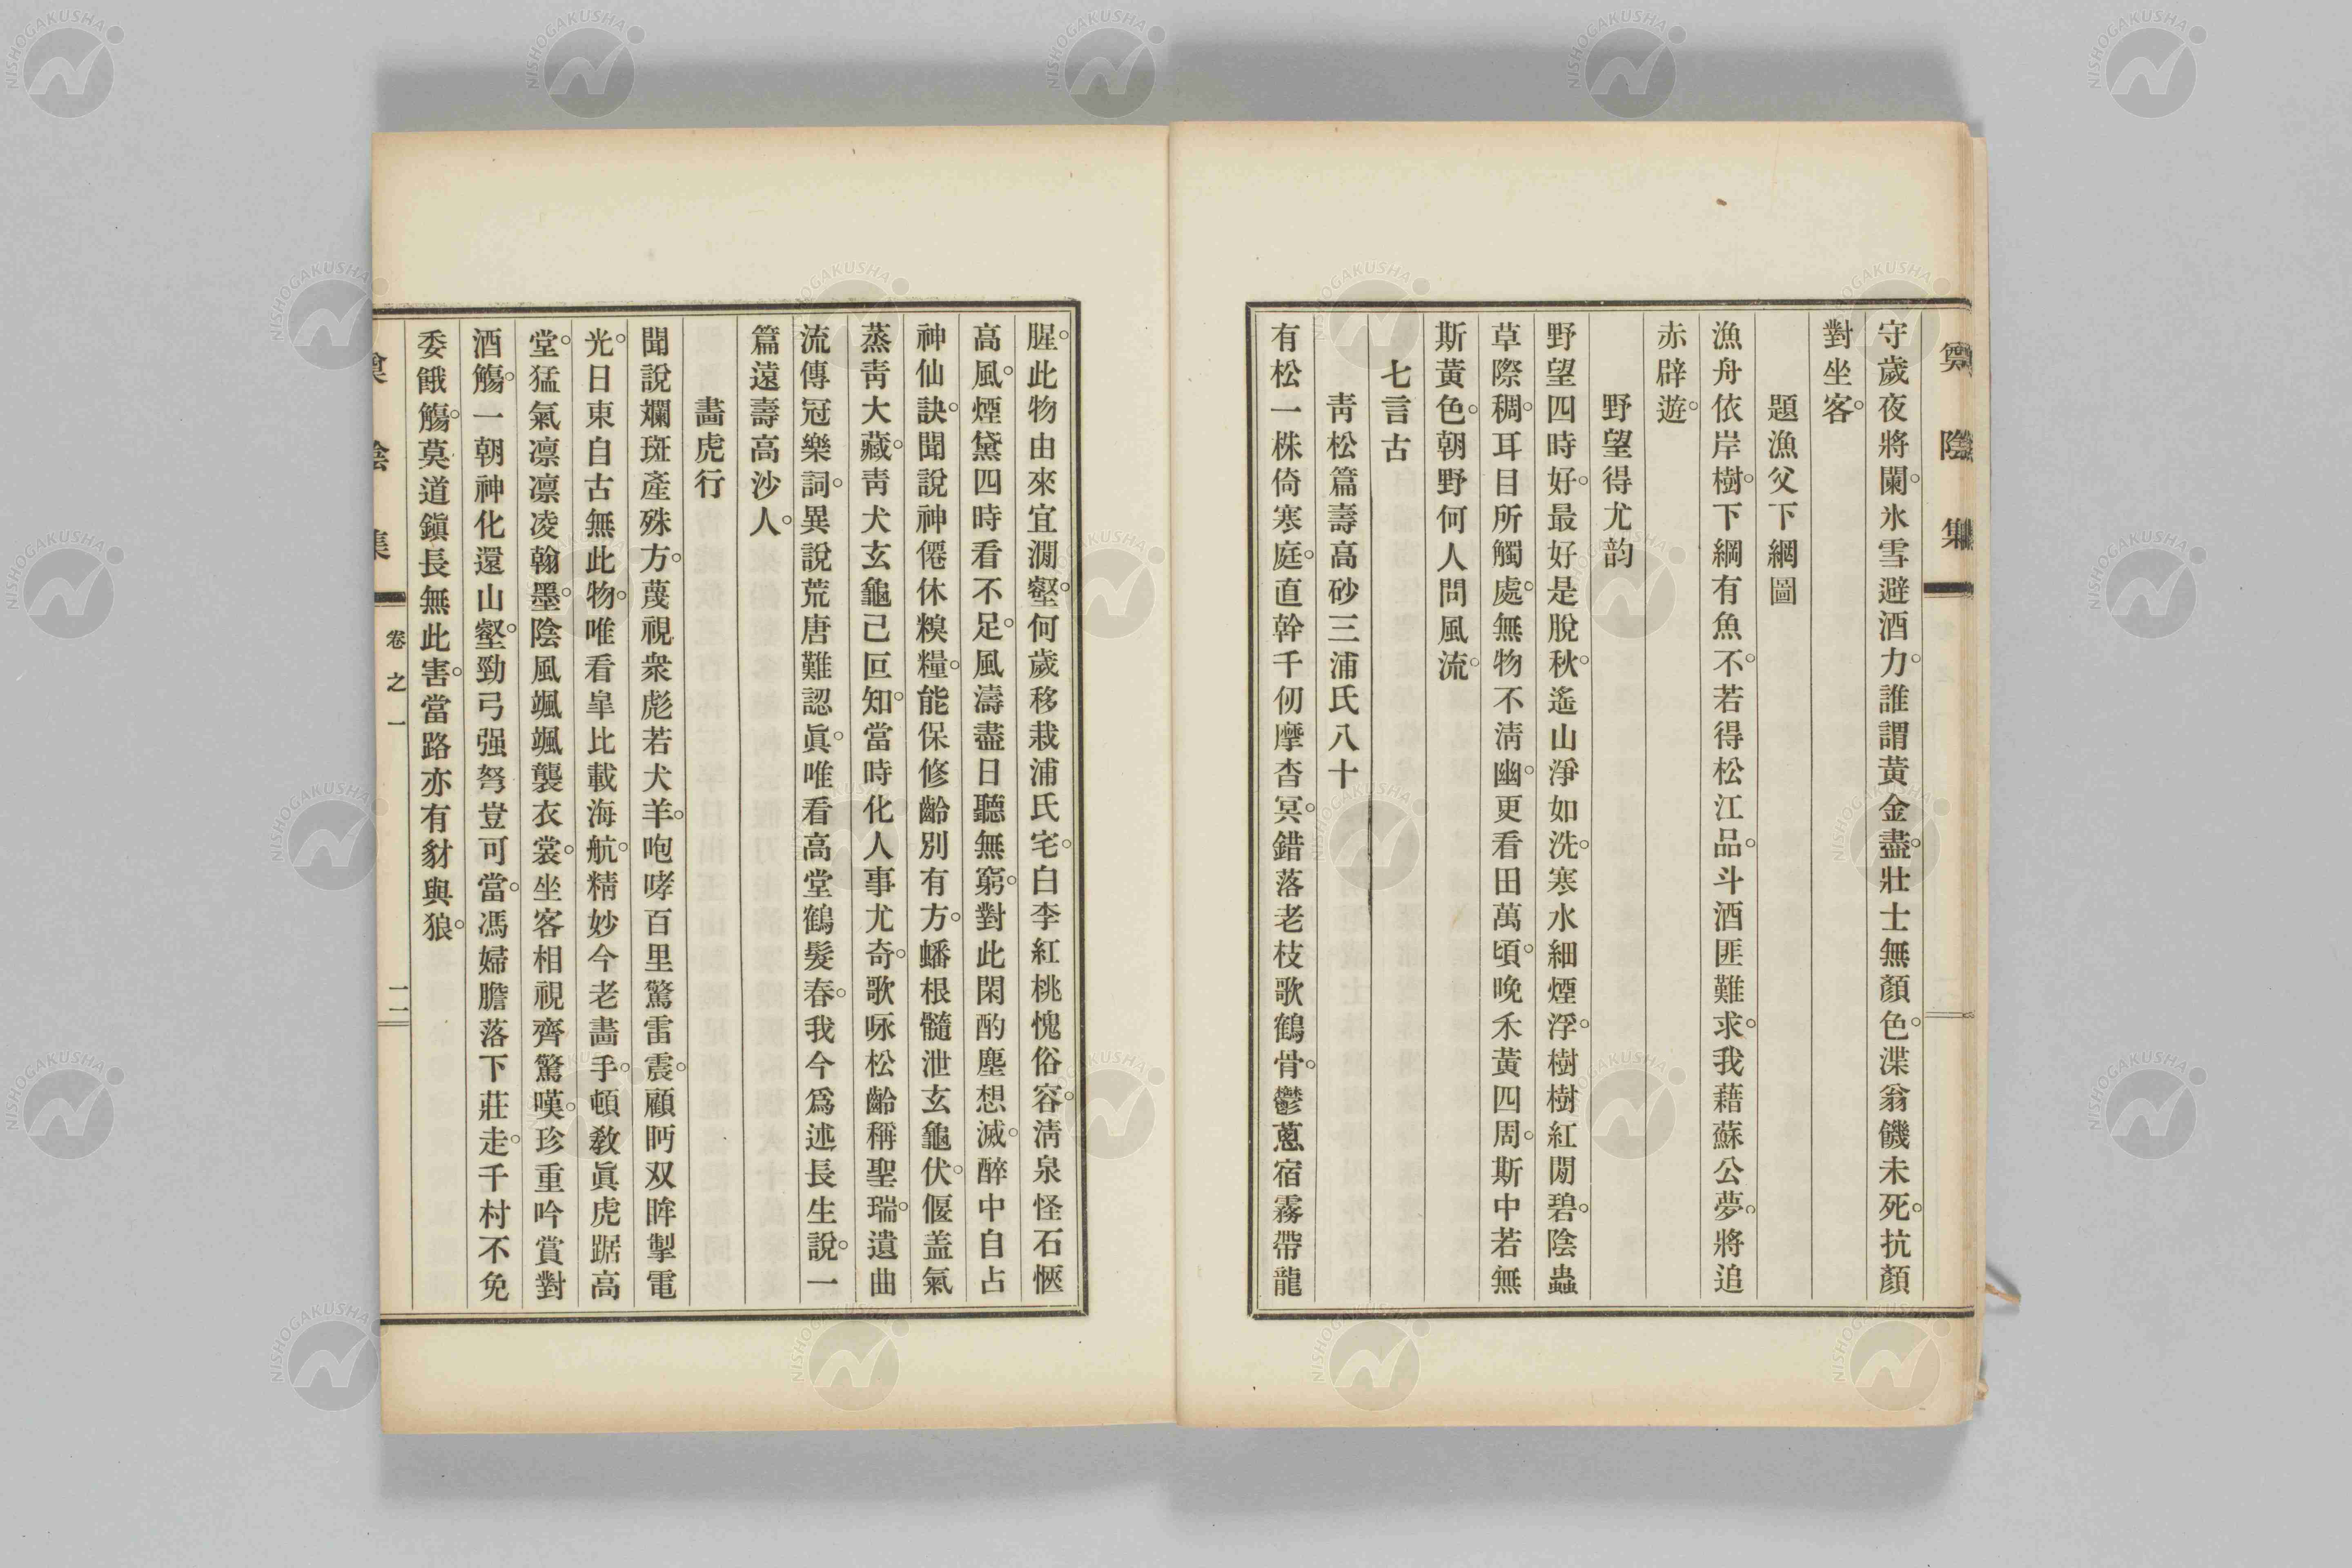 守歲夜將闌。氷雪避酒力。誰謂黃金盡。壯士無顏色。渫翁饑未死。抗顏
對坐客。
題漁父下網圖
漁舟依岸樹。下網有魚不。若得松江品。斗酒匪難求。我藉蘇公夢。將追
赤辟遊。
野望得尤韵
野望四時好。最好是脫秋。遙山淨如洗。寒水細煙浮。樹樹紅閒碧。陰蟲
草際稠。耳目所觸處。無物不淸幽。更看田萬頃。晚禾黃四周。斯中若無
斯黃色。朝野何人問風流。
七言古
靑松篇壽高砂三浦氏八十
有松一株倚寒庭。直幹千仞摩杳冥。錯落老枝歌鶴骨。鬱蔥宿霧帶龍
腥。此物由來宜澗壑。何歲移栽浦氏宅。白李紅桃愧俗容。淸泉怪石愜
高風。煙黛四時看不足。風濤盡日聽無窮。對此閑酌塵想滅。醉中自占
神仙訣。聞說神僊休糗糧。能保修齡別有方。蟠根髓泄玄龜伏。偃盖氣
蒸靑大藏。靑犬玄龜己叵知。當時化人事尤奇。歌咏松齡稱聖瑞。遺曲
流傳冠樂詞。異說荒唐難認眞。唯看高堂鶴髮春。我今爲述長生說。一
篇遠壽高沙人。
畵虎行
聞說斕斑產殊方。蔑視衆彪若犬羊。咆哮百里驚雷震。顧眄双眸掣電
光。日東自古無此物。唯看皐比載海航。精妙今老畵手。頓敎眞虎踞高
堂。猛氣凛凛凌翰墨。陰風颯颯襲衣裳。坐客相視齊驚嘆。珍重吟賞對
酒觴。一朝神化還山壑。勁弓强弩豈可當。馮婦膽落下莊走。千村不免
委餓觴。莫道鎭長無此害。當路亦有豺與狼。
陰集
卷之一
二